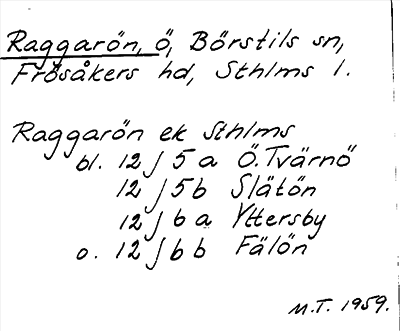 Raggarön, ö, Börstils sn,
Frösåkers hd, Sthlms l.
Raggarön ek Sthlms
bl. 12 J 5 a Ö. Tvärnö
12 J 5 b Slätön
12 J 6 a Yttersby
o. 12 J 6 b Fälön
M.T. 1959.